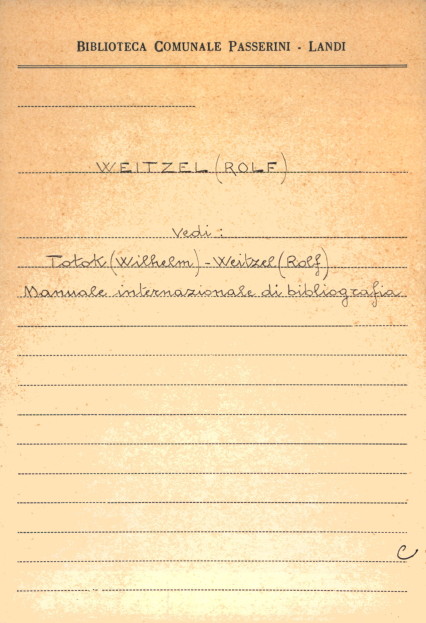 BIBLIOTECA COMUNALE PASSERINI - LANDI
WEITZEL (ROLF)
Vedi :
Totok (Wilhelm) - Weitzel (Rolf)
Manuale internazionale di bibliografia
C